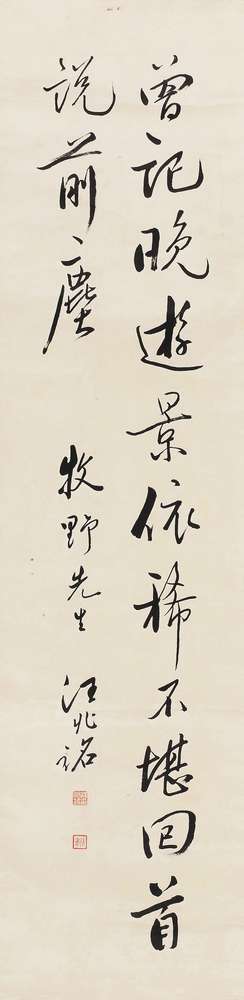 曾記晚遊景依稀不堪回首
説前塵
牧野先生
汪兆銘